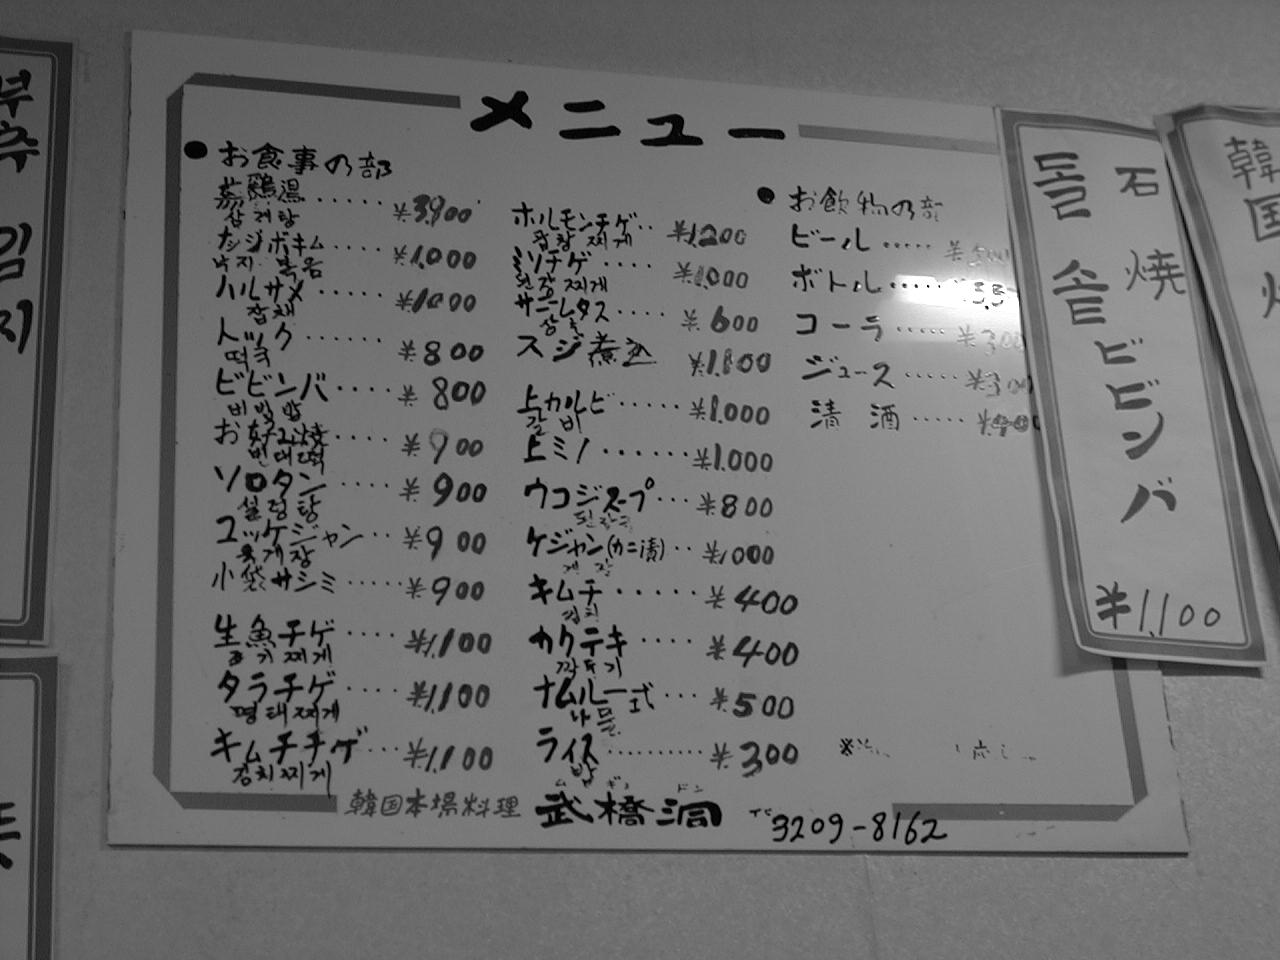 メニュー
●お食事の部
蔘鶏湯 ····· ¥3,900
삼계탕
ナッジポキム ···· ¥1,000
낙지 볶음
ハルサメ ····· ¥1,000
잡채
トック ······ ¥800
떡국
ビビンバ ···· ¥800
비빔밥
お好み焼 ···· ¥900
빈대떡
ソロタン ···· ¥900
설렁탕
ユッケジャン ·· ¥900
육개장
小袋サシミ ····· ¥900
生魚チゲ ···· ¥1,100
찌게
タラチゲ ···· ¥1,100
명태찌게
キムチチゲ ··· ¥1,100
김치찌게
ホルモンチゲ ·· ¥1,200
곱창찌게
ミソチゲ ···· ¥1,000
된장찌게
サニーレタス ···· ¥600
スジ煮込 ¥1,800
上カルビ ····· ¥1,000
갈비
上ミノ ······ ¥1,000
ウコジスープ ··· ¥800
ケジャン(カニ漬) ·· ¥1000
게장
キムチ ····· ¥400
김치
カクテキ ···· ¥400
깍두기
ナムル一式 ··· ¥500
나물
ライス ········· ¥300
밥
●お飲物の部
ビール ·····
ボトル ······
コーラ ····· ¥300
ジュース ····· ¥300
清酒 ·····
韓国本場料理 武橋洞 3209-8162
ムギョドン
돌솥ビビンバ
石焼
¥1,100
韓国
부추